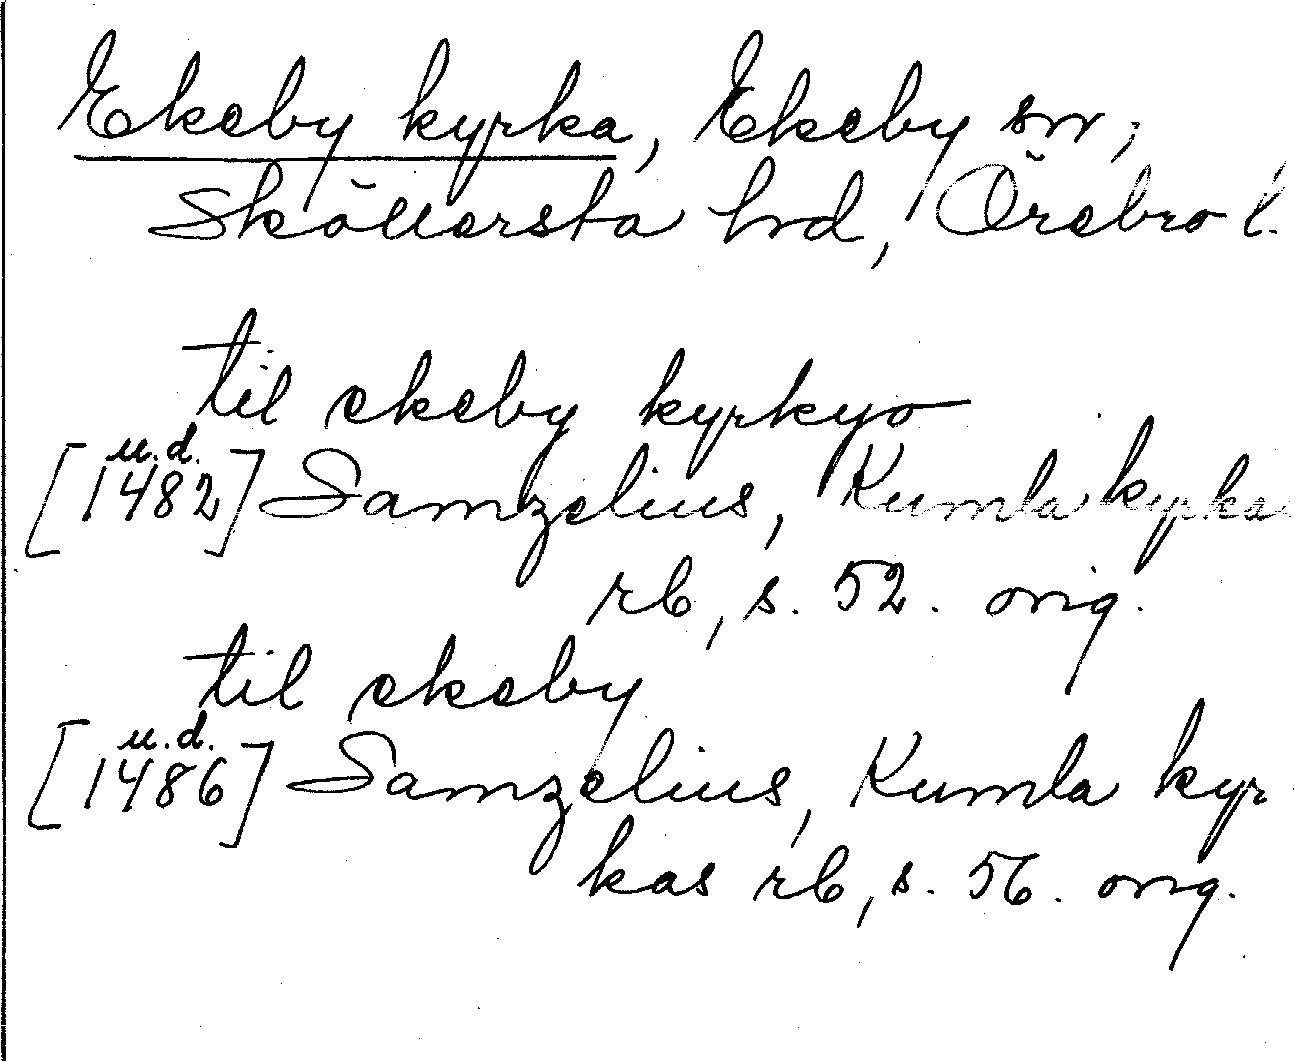 Ekeby kyrka, Ekeby sn,
Sköllersta hrd, Örebro l.
til ekeby kyrkyo
[u.d. 1482] Samzelius, Kumla kyrkas
rb, s. 52. orig.
til ekeby
[u.d. 1486] Samzelius, Kumla kyr
kas rb, s. 56. orig.